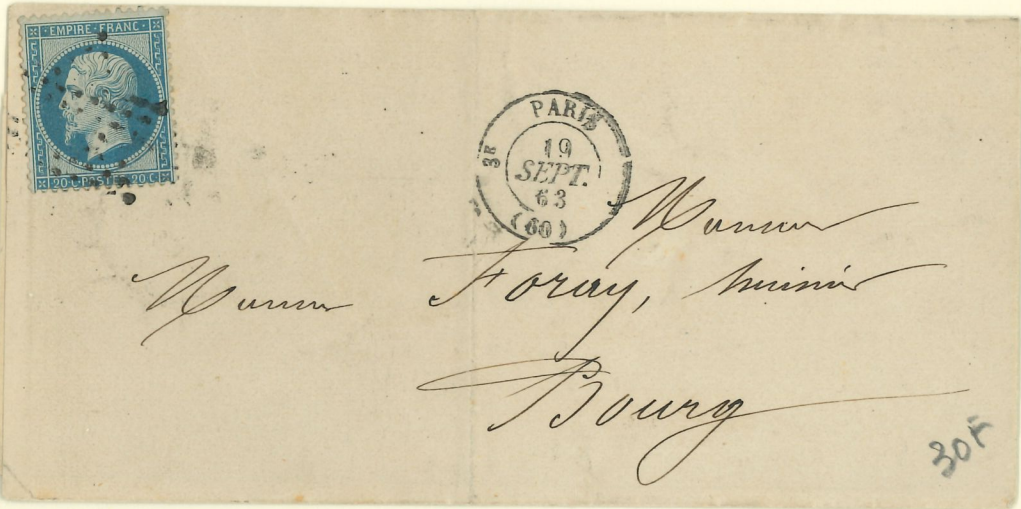 EMPIRE · FRANC ·
20 C POSTES 20 C
PARIS
3E
19
SEPT.
63
(60)
Monsieur
Monsieur
Foray, huissier
Bourg
30 F